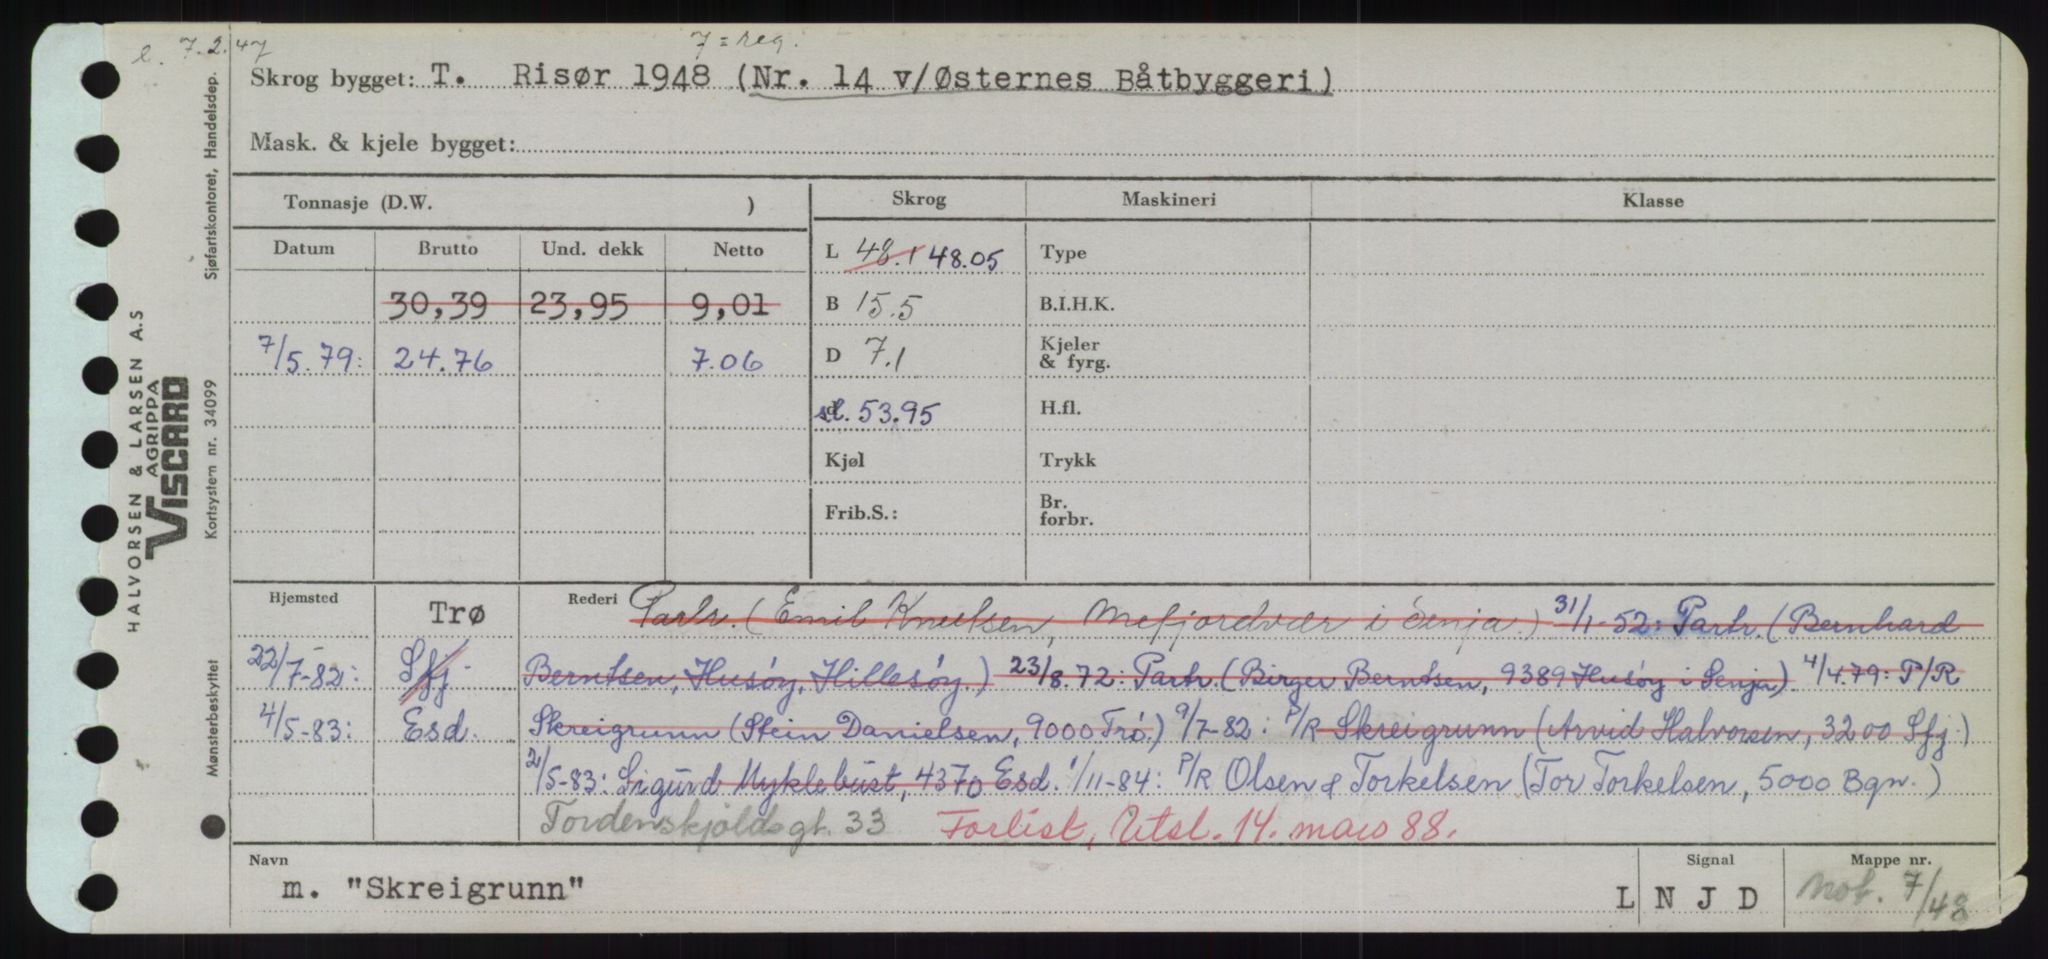 l. 7.2.47
7 = reg.
Skrog bygget: T. Risør 1948 (Nr. 14 v/Østernes Båtbyggeri)
Mask. & kjele bygget:
Tonnasje (D.W. )
Skrog
Maskineri
Klasse
Datum
Brutto
Und. dekk
Netto
L 48.1 48.05
Type
30,39 23,95 9,01
B 15.5
B.I.H.K.
7/5.79: 24.76 7.06
D 7.1
Kjeler
& fyrg.
d sl. 53.95
H.fl.
Kjøl
Trykk
Frib.S.:
Br.
forbr.
Hjemsted
Trø
Rederi
Partr. (Emil Knutsen, Mefjordvær i Senja.) 31/1-52: Partr. (Bernhard
22/7-82: Sfj.
Berntsen, Husøy, Hillesøy.) 23/8.72: Partr. (Birger Berntsen, 9389 Husøy i Senja). 4/4.79: P/R
4/5-83: Esd.
Skreigrunn (Stein Danielsen, 9000 Trø.) 9/7-82: P/R Skreigrunn (Arvid Halvorsen, 3200 Sfj.)
2/5-83: Sigurd Myklebust, 4370 Esd. 1/11-84: P/R Olsen & Torkelsen (Tor Torkelsen, 5000 Bgn.)
Tordenskjoldsgt. 33 Forlist, Utsl. 14. mars 88.
Navn
m. "Skreigrunn"
Signal
L N J D
Mappe nr.
not. 7/48
HALVORSEN & LARSEN A.S
AGRIPPA
VISCARD
Mønsterbeskyttet Kortsystem nr. 34099 Sjøfartskontoret, Handelsdep.